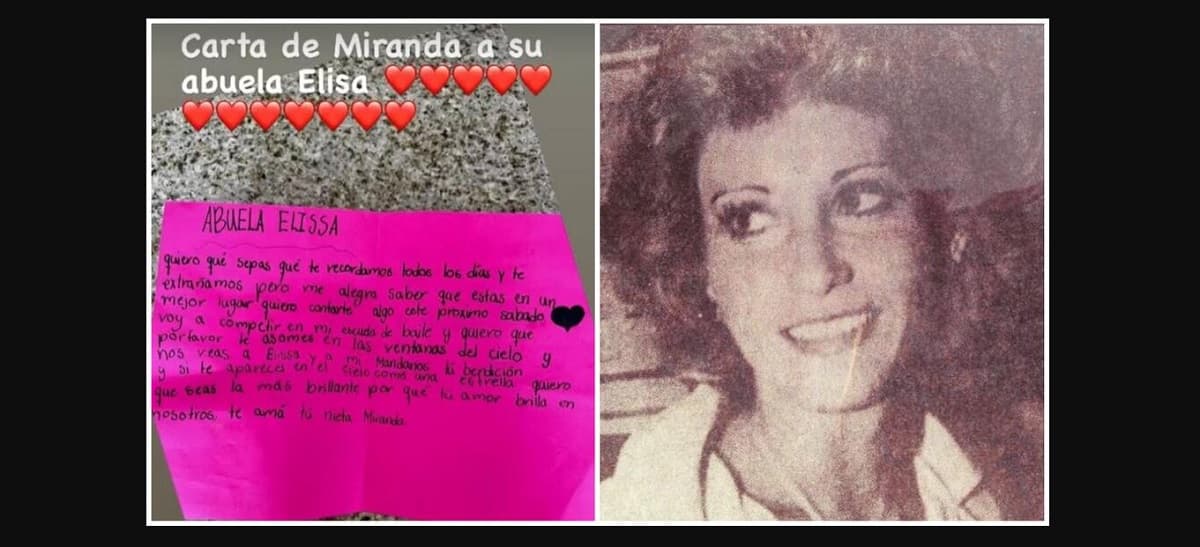 Carta de Miranda a su
abuela Elisa ❤️❤️❤️❤️❤️
❤️❤️❤️❤️❤️❤️❤️
ABUELA ELISSA
quiero qué sepas qué te recordamos todos los días y te
extrañamos pero me alegra saber que estas en un
mejor lugar quiero contarte algo este próximo sabado
voy a competir en mi escuela de baile y quiero que
porfavor te asomes en las ventanas del cielo y
nos veas a Elissa y a mi Mandanos tú bendición
y si te apareces en el cielo como una estrella quiero
que seas la más brillante por qué tu amor brilla en
nosotros, te amá tú nieta Miranda.